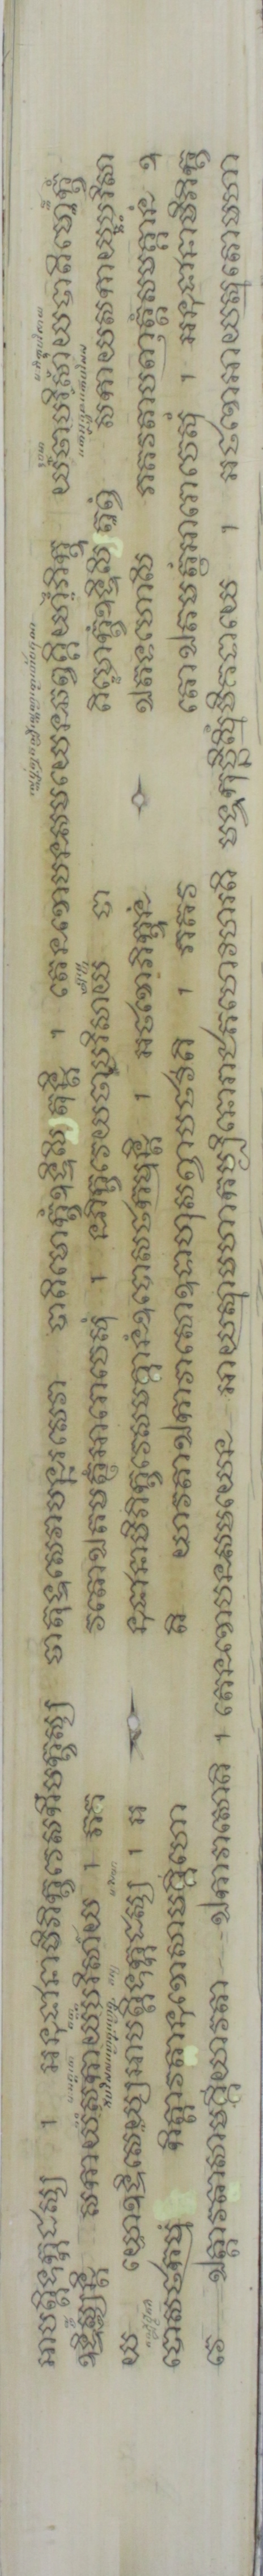 អាបត្តិទុក្កដស្ស ។ អនុជានាមិភិក្ខវេសកឹបក្ខស្ស ចាតុទ្ទសេវាបន្នរសេវា បាតិមោក្ខំឧទ្ទិសិតុន្តិ ។ តេនខោបនសមយេនឆព្វគ្គិយាភិក្ខូ យថាបរិសាយបាតិមោក្ខំ
ឧទ្ទិស្សន្តិ សកាយសកាយបរិសាយ ។ ភគ វតោឯតមត្ថំអារោចេសុំ ។ នភិក្ខវេយថាបរិសាយ បា តិមោក្ខំឧទ្ទិសិតព្វំ សកាយសកាយបរិសា
យ យោឧទ្ទិសេយ្យអាបត្តិទុក្កដស្ស ។ អ នុជានាមិភិក្ខវេសមគ្គានំឧបោសថកម្មន្តិ ។ អថខោភិក្ខូនំ ឯតទហោសិ ភគវតាបញាត្តំសមគ្គានំ ឧ
បោសថកម្មំ កិត្តាវតានុខោសាមគ្គីហោ តិ យាវតាឯកាវាសោឧទាហុសព្វាបថវីតិ ។ ភគវ តោឯតមត្ថំអារោចេសុំ ។ អនុជានាមិភិក្ខ
វេ ឯត្តាវតាសាមគ្គីយាវតា ឯកាវាសោតិ ។ តេនខោបនសមយេន អាយស្មាមហាកប្បិនោរាជគហេវិហរតិ មទ្ទកុច្ឆិស្មឹមិគទាយេ ។ អថខោអាយស្មតោមហា